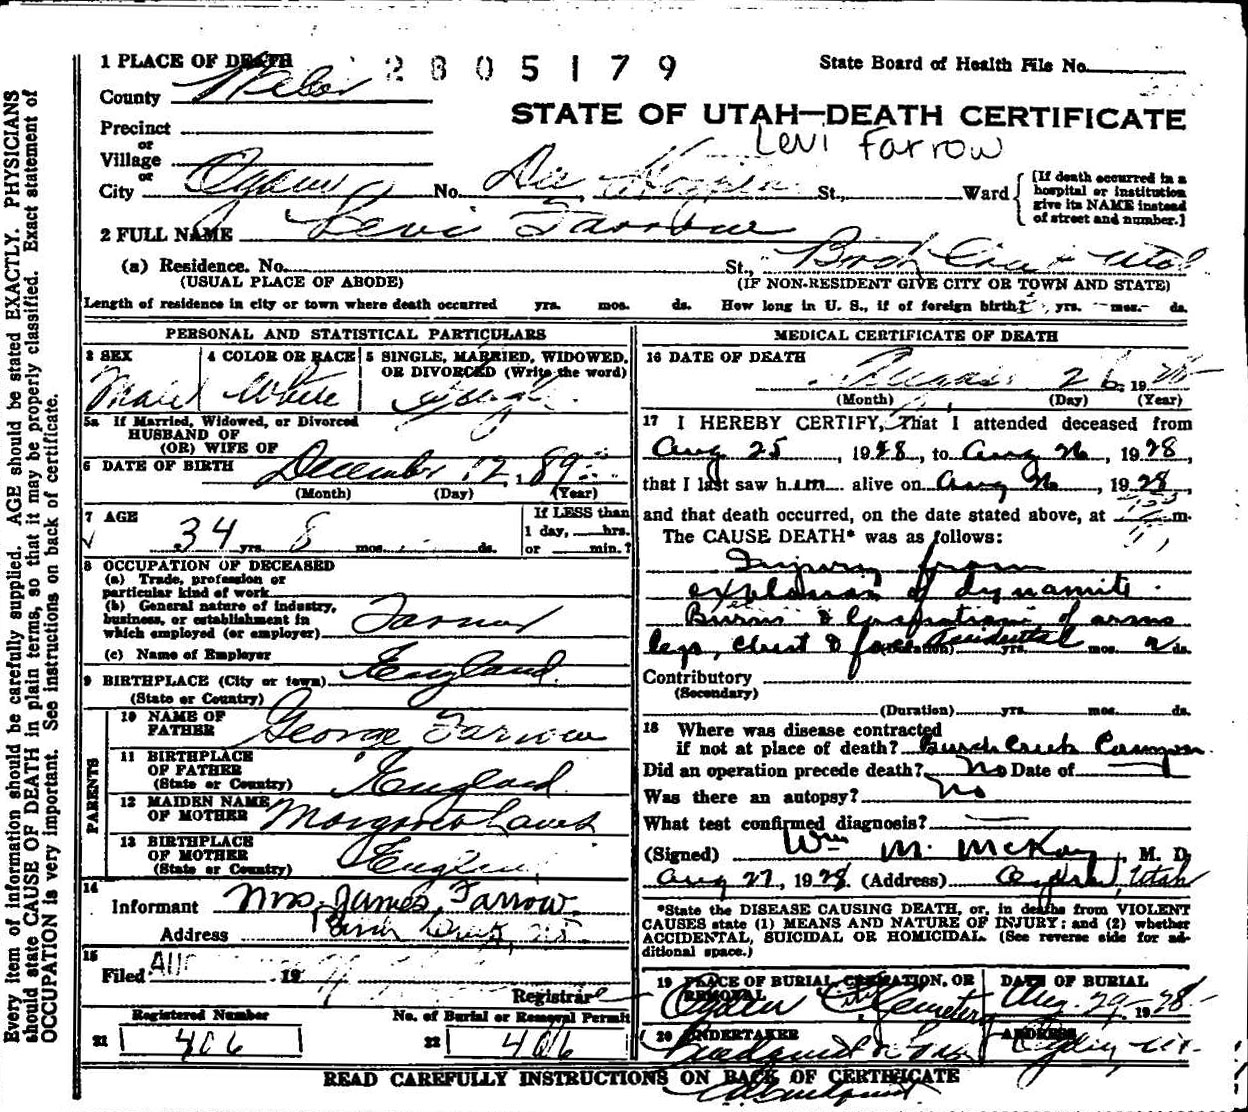 1 PLACE OF DEATH 2805179 State Board of Health File No.
County Weber
STATE OF UTAH—DEATH CERTIFICATE
Precinct
or
Levi Farrow
Village
or
City Ogden No. Dee Hospital St., Ward [If death occurred in a hospital or institution give its NAME instead of street and number.]
2 FULL NAME Levi Farrow
(a) Residence. No. St., Utah
(USUAL PLACE OF ABODE) (IF NON-RESIDENT GIVE CITY OR TOWN AND STATE)
Length of residence in city or town where death occurred yrs. mos. ds. How long in U. S., if of foreign birth? yrs. mos. ds.
PERSONAL AND STATISTICAL PARTICULARS
3 SEX 4 COLOR OR RACE 5 SINGLE, MARRIED, WIDOWED, OR DIVORCED (Write the word)
Male White Single
5a If Married, Widowed, or Divorced
HUSBAND OF
(OR) WIFE OF
6 DATE OF BIRTH December 12, 89
(Month) (Day) (Year)
7 AGE If LESS than
34 yrs. 8 mos. ds. 1 day, hrs.
or min.?
8 OCCUPATION OF DECEASED
(a) Trade, profession or
particular kind of work
(b) General nature of industry,
business, or establishment in
which employed (or employer) Farmer
(c) Name of Employer
9 BIRTHPLACE (City or town) England
(State or Country)
PARENTS
10 NAME OF
FATHER George Farrow
11 BIRTHPLACE
OF FATHER England
(State or Country)
12 MAIDEN NAME
OF MOTHER Margaret
13 BIRTHPLACE
OF MOTHER England
(State or Country)
14
Informant Mrs. James Farrow
Address
15
Filed 19
Registrar
Registered Number No. of Burial or Removal Permit
21 406 22 406
MEDICAL CERTIFICATE OF DEATH
16 DATE OF DEATH
August 26, 1928
(Month) (Day) (Year)
17 I HEREBY CERTIFY, That I attended deceased from
Aug 25, 1928, to Aug 26, 1928,
that I last saw him alive on Aug 26, 1928
and that death occurred, on the date stated above, at m.
The CAUSE DEATH* was as follows:
Injury from
explosion of dynamite.
Burns & lacerations of arms
legs, chest & face Accidental (Duration) yrs. mos. 2 ds.
Contributory
(Secondary)
(Duration) yrs. mos. ds.
18 Where was disease contracted
if not at place of death? Burch Creek Canyon
Did an operation precede death? No Date of
Was there an autopsy? No
What test confirmed diagnosis?
(Signed) Wm M. McKay, M. D.
Aug 27, 1928. (Address) Ogden, Utah
*State the DISEASE CAUSING DEATH, or, in deaths from VIOLENT
CAUSES state (1) MEANS AND NATURE OF INJURY; and (2) whether
ACCIDENTAL, SUICIDAL OR HOMICIDAL. (See reverse side for ad-
ditional space.)
19 PLACE OF BURIAL, CREMATION, OR REMOVAL DATE OF BURIAL
Ogden City Cemetery Aug. 29, 1928
20 UNDERTAKER ADDRESS
Ogden
READ CAREFULLY INSTRUCTIONS ON BACK OF CERTIFICATE
Every item of information should be carefully supplied. AGE should be stated EXACTLY. PHYSICIANS
should state CAUSE OF DEATH in plain terms, so that it may be properly classified. Exact statement of
OCCUPATION is very important. See instructions on back of certificate.